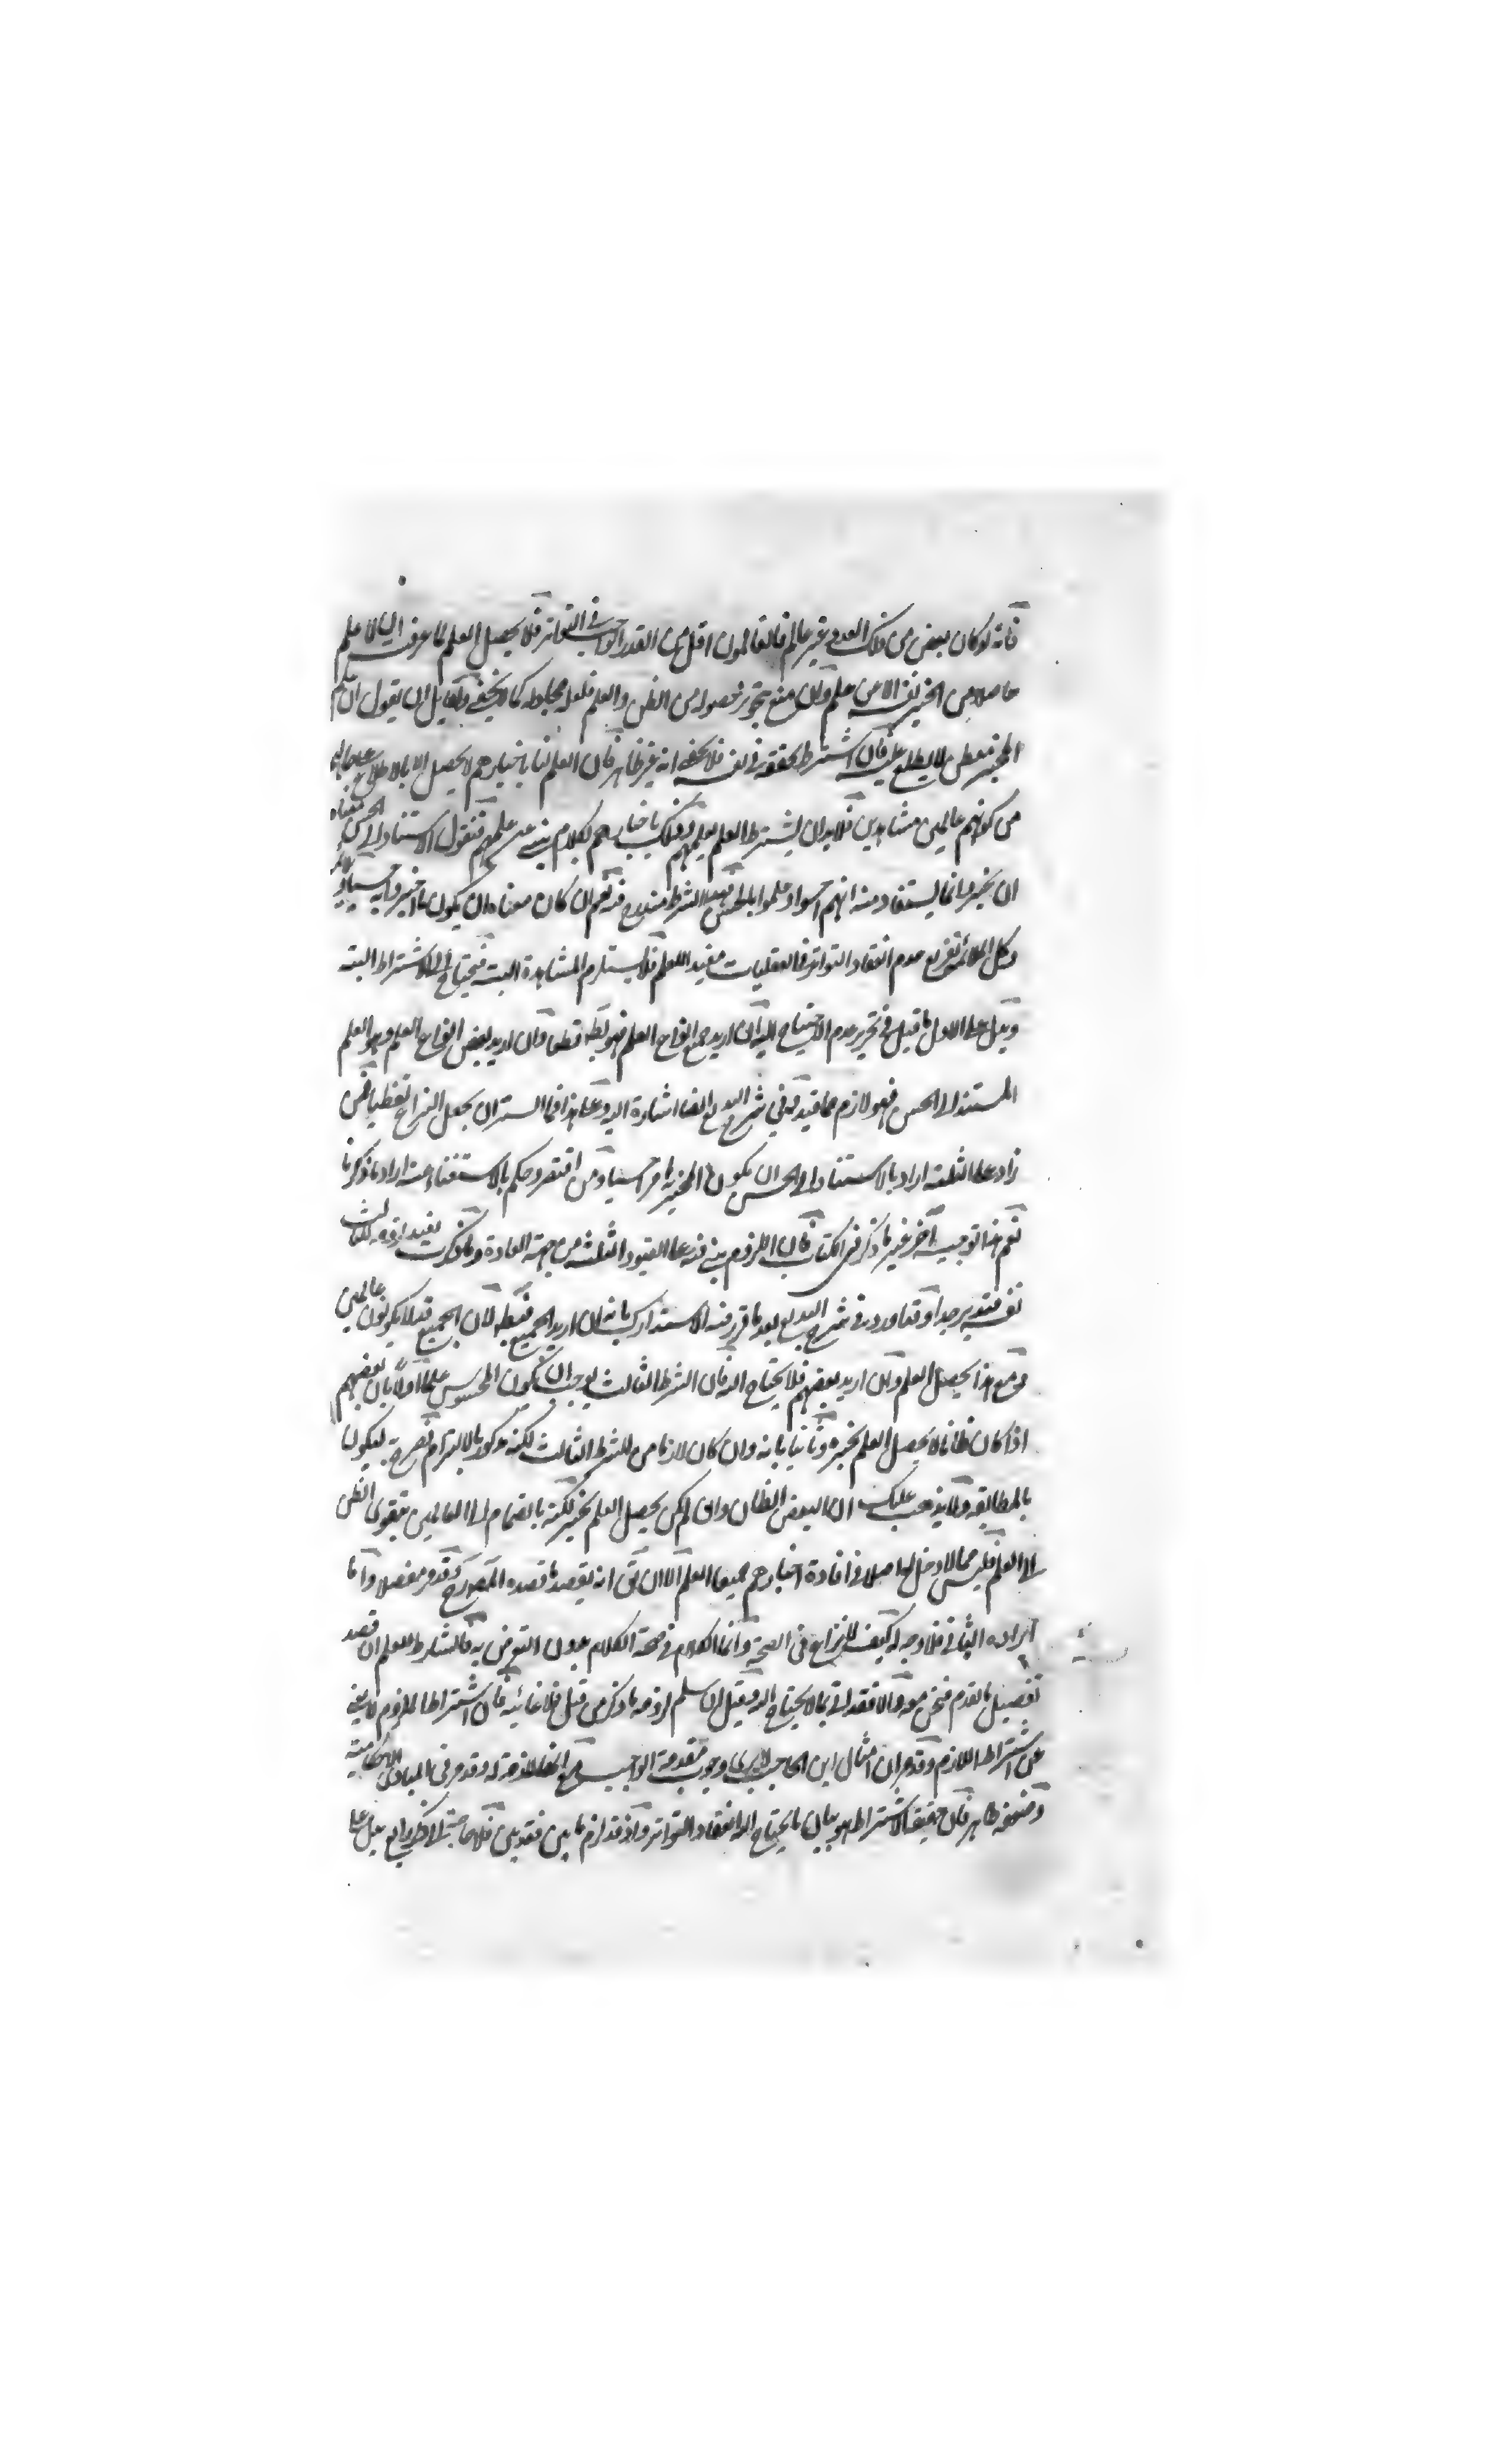 فانه لو كان بعض من ذلك العدد غير عالم فالعالمون اقل من القدر الواجب في التواتر فلا يحصل العلم لما عرفت ان لا علم
حاصلا من الخبر نفسه الا من علم ولان منع تجويز حصوله من الظن والعلم فلعله كما لا يخفى ولقايل ان يقول ان علم
المخبر فعطن لا يطلع عليه فان اشترط تحققه في نفسه فلا يخفى انه غير ظاهر فان العلم لنا باخبارهم لا يحصل الا بالاطلاع على حالهم
من كونهم عالمين مشاهدين فلا بد ان يشترط العلم بعلمهم وذلك باخبارهم بكلام ينبئ عن علمهم فنقول الاستناد الى الحس معناه
ان يخبروا بما يستفاد منه انهم احسوا وعلموا بالحس فهذا الشرط مندرج فيه نعم ان كان معناه ان يكون ما اخبروا به حسيا
وكل تفريع عدم انعقاد التواتر في العقليات مفيد للعلم فلا يستلزم المشاهدة البتة فيحتاج الى الاشتراط البتة
ويدل على الاول ما قيل في تحرير عدم الاحتياج اليه ان اريد جميع انواع العلم فهو بط قطعا وان اريد بعض انواع العلم وهو العلم
المستند الى الحس فهو لازم مما قيد به في شرح البديع ايضا اشارة اليه وعلى هذا فما ايسر ان يجعل النزاع لفظيا فمن
زاد على الثلثة اراد بالاستناد الى الحس ان يكون المخبر به امر حسيا ومن اقتصر وحكم بالاستغناء عنه اراد ما ذكرنا
نعم هذا توجيه آخر غير ما ذكر في الكتاب فان اللزوم بني فيه على القيود الثلثة من جهة العادة وما ذكرت يفيد لزومه للثالث
نفسه فتدبر جدا وقد اورد في شرح البديع بعد ما قرر فيه الاستدراك بانه ان اريد الجميع فبط لان الجميع قد لا يكونون عالمين
ومع هذا يحصل العلم وان اريد بعضهم فلا يحتاج اليه فان الشرط الثالث يوجب ان يكون المحسوس علما اولا بان بعضهم
اذا كان ظانا لا يحصل العلم بخبره وثانيا بانه وان كان لازما من الشرط الثالث لكنه مذكور بالالتزام فصرح به ليكون
بالمطابقة ولا يذهب عليك ان البعض الظان وان لم يكن يحصل العلم بخبره لكنه بانضمامه الى العالمين يتقوى الظن
الى العلم فليس مما لا دخل له اصلا في افادة اخبارهم جميعا العلم الا ان يق انه يقصد ما قصده المصرح وقد مر مفصلا واما
ايراده الثاني فلا وجه له كيف لا نزاع في الصحة وانما الكلام في صحة الكلام بدون التعرض به فالشارط للعلم ان قصد
تفصيل ما تقدم فنحن معه والا فقد اتى بما لا يحتاج اليه وقيل ان سلم لزومه ما ذكر من قبل فلا غائلة فان اشتراط الملزوم لا يغني
عن اشتراط اللازم وقد مر ان امثال ابن الحاجب لا يرى وجوب مقدمة الواجب مع انها لازمة له وقد مر في المبادي الاحكامية
وضعفه ظاهر فان حقيقة الاشتراط هو بيان ما يحتاج اليه انعقاد التواتر واذ قد لزم ما بين فقد بين فلا حاجة الى ذكر رابع يدل على